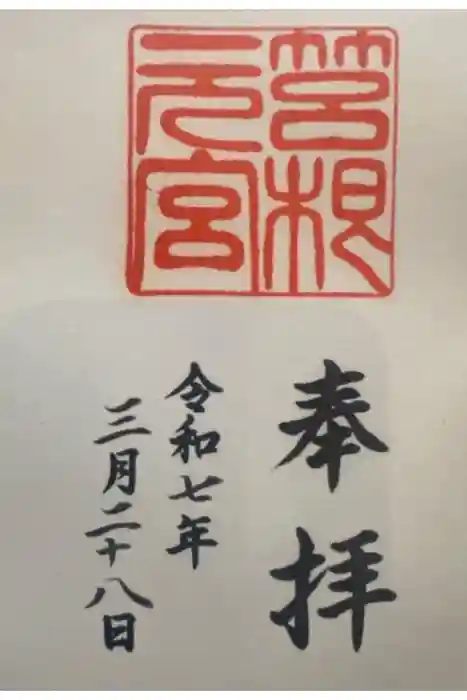 筥根
元宮
奉拝
令和七年
三月二十八日